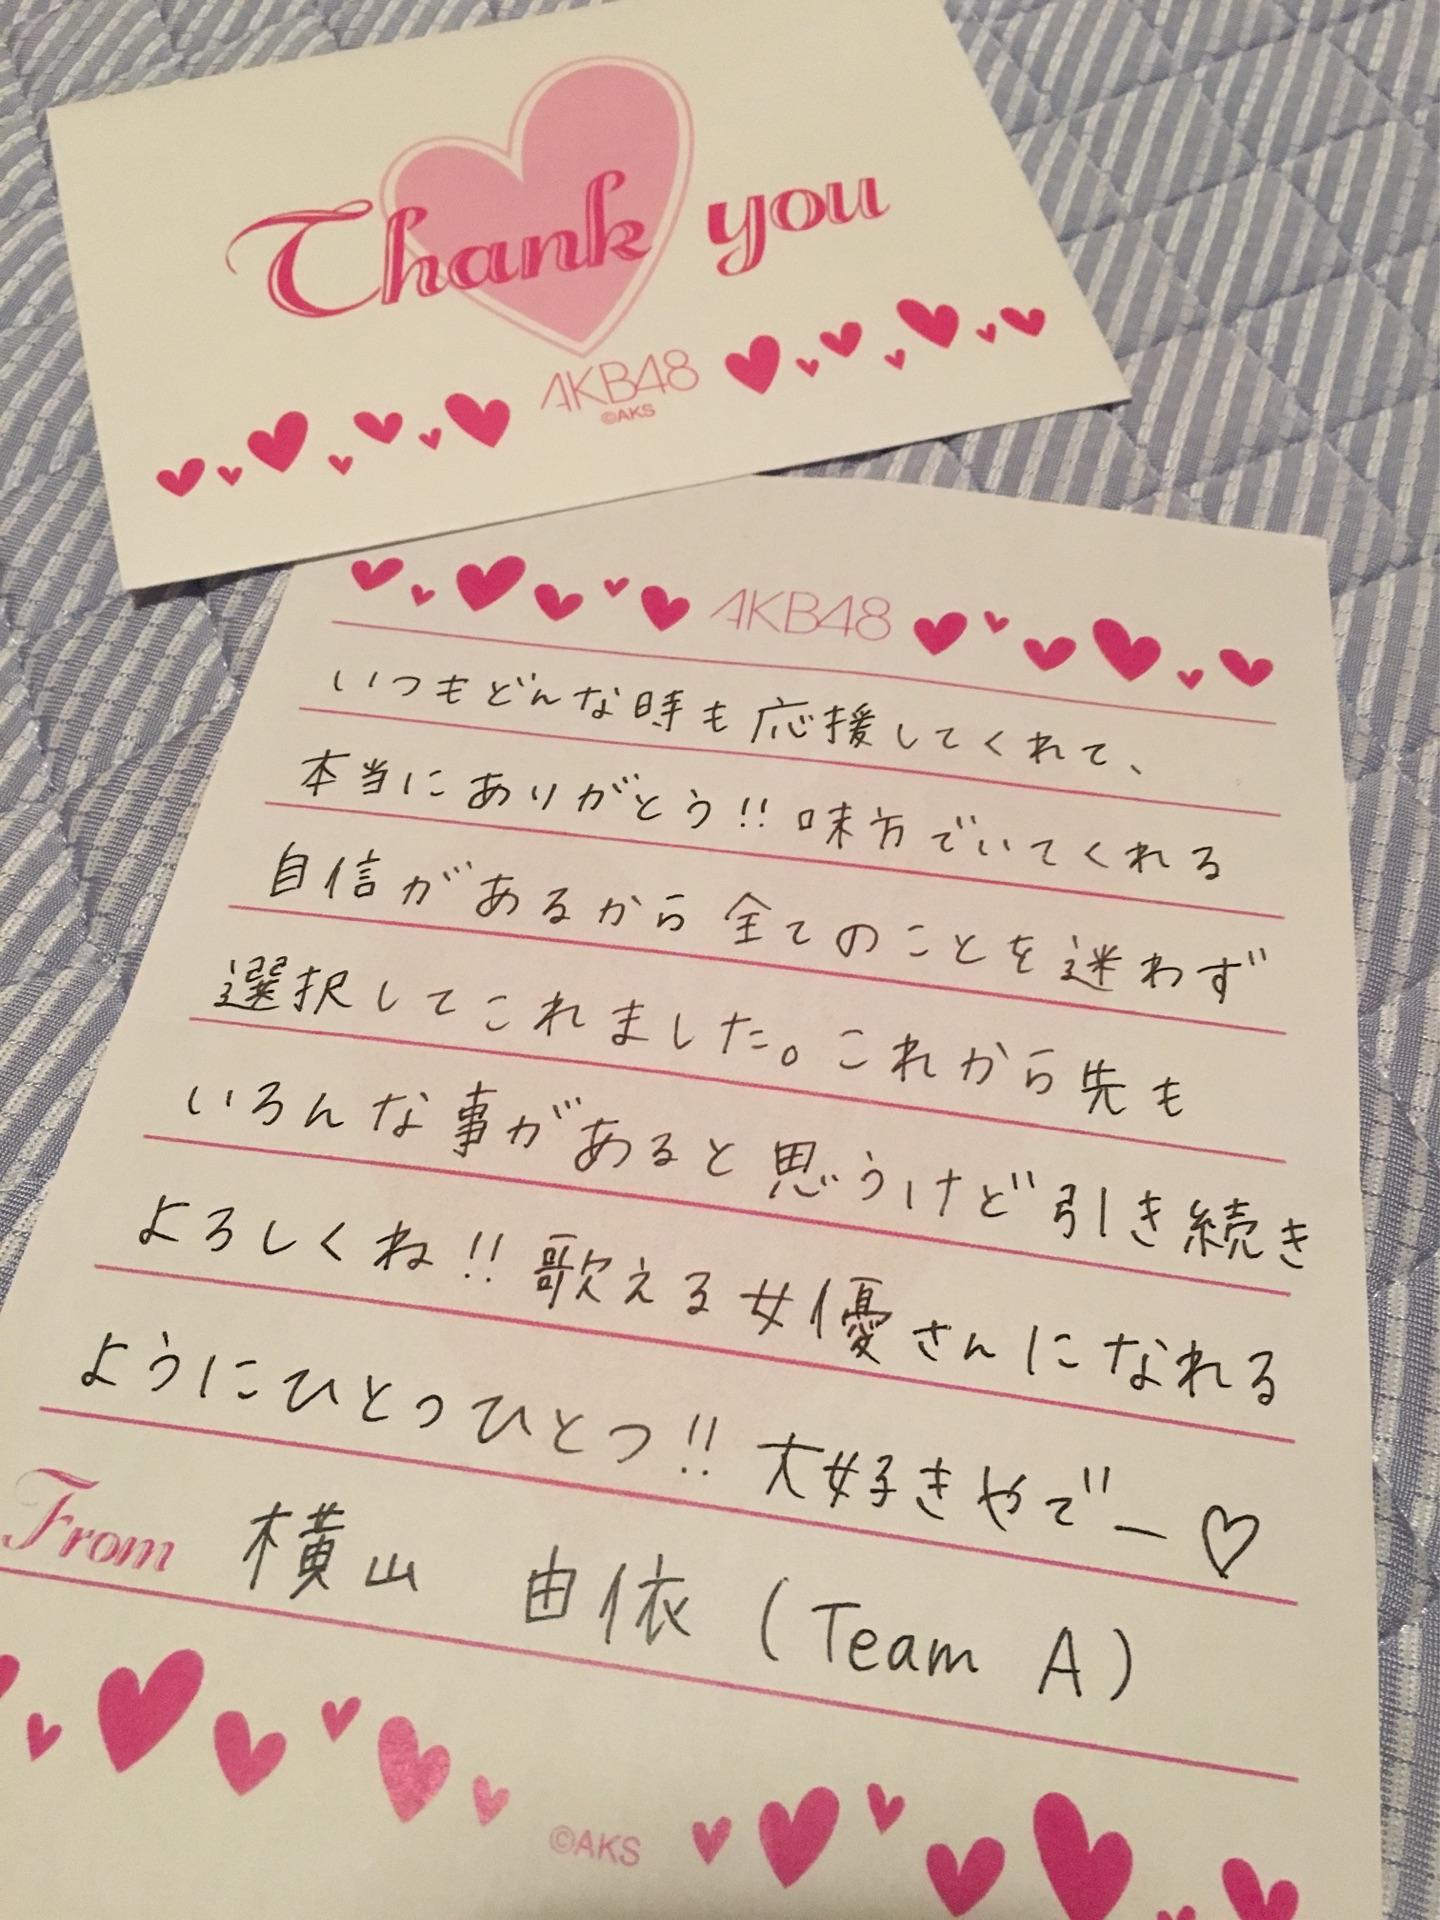 Thank you
AKB48
©AKS
AKB48
いつもどんな時も応援してくれて、
本当にありがとう!! 味方でいてくれる
自信があるから全てのことを迷わず
選択してこれました。これから先も
いろんな事があると思うけど引き続き
よろしくね!! 歌える女優さんになれる
ようにひとつひとつ!! 大好きやでー♡
From 横山 由依 (Team A)
©AKS